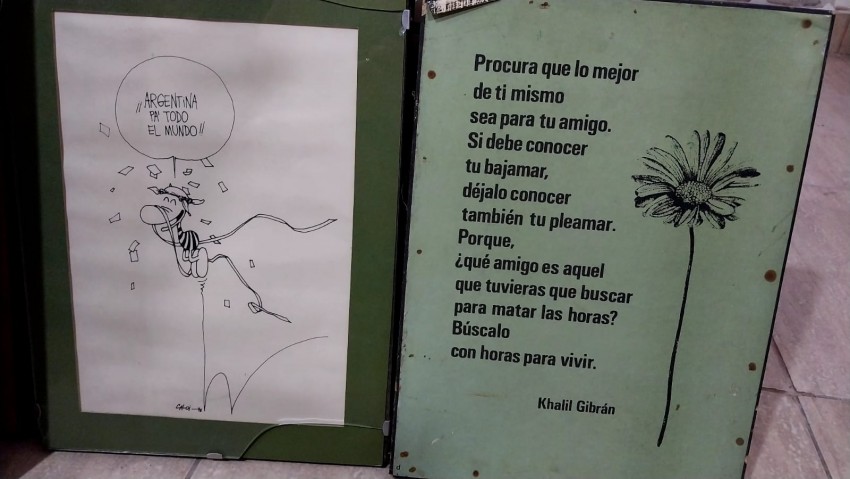 "ARGENTINA
PA' TODO
EL MUNDO"
Procura que lo mejor
de ti mismo
sea para tu amigo.
Si debe conocer
tu bajamar,
déjalo conocer
también tu pleamar.
Porque,
¿qué amigo es aquel
que tuvieras que buscar
para matar las horas?
Búscalo
con horas para vivir.
Khalil Gibrán